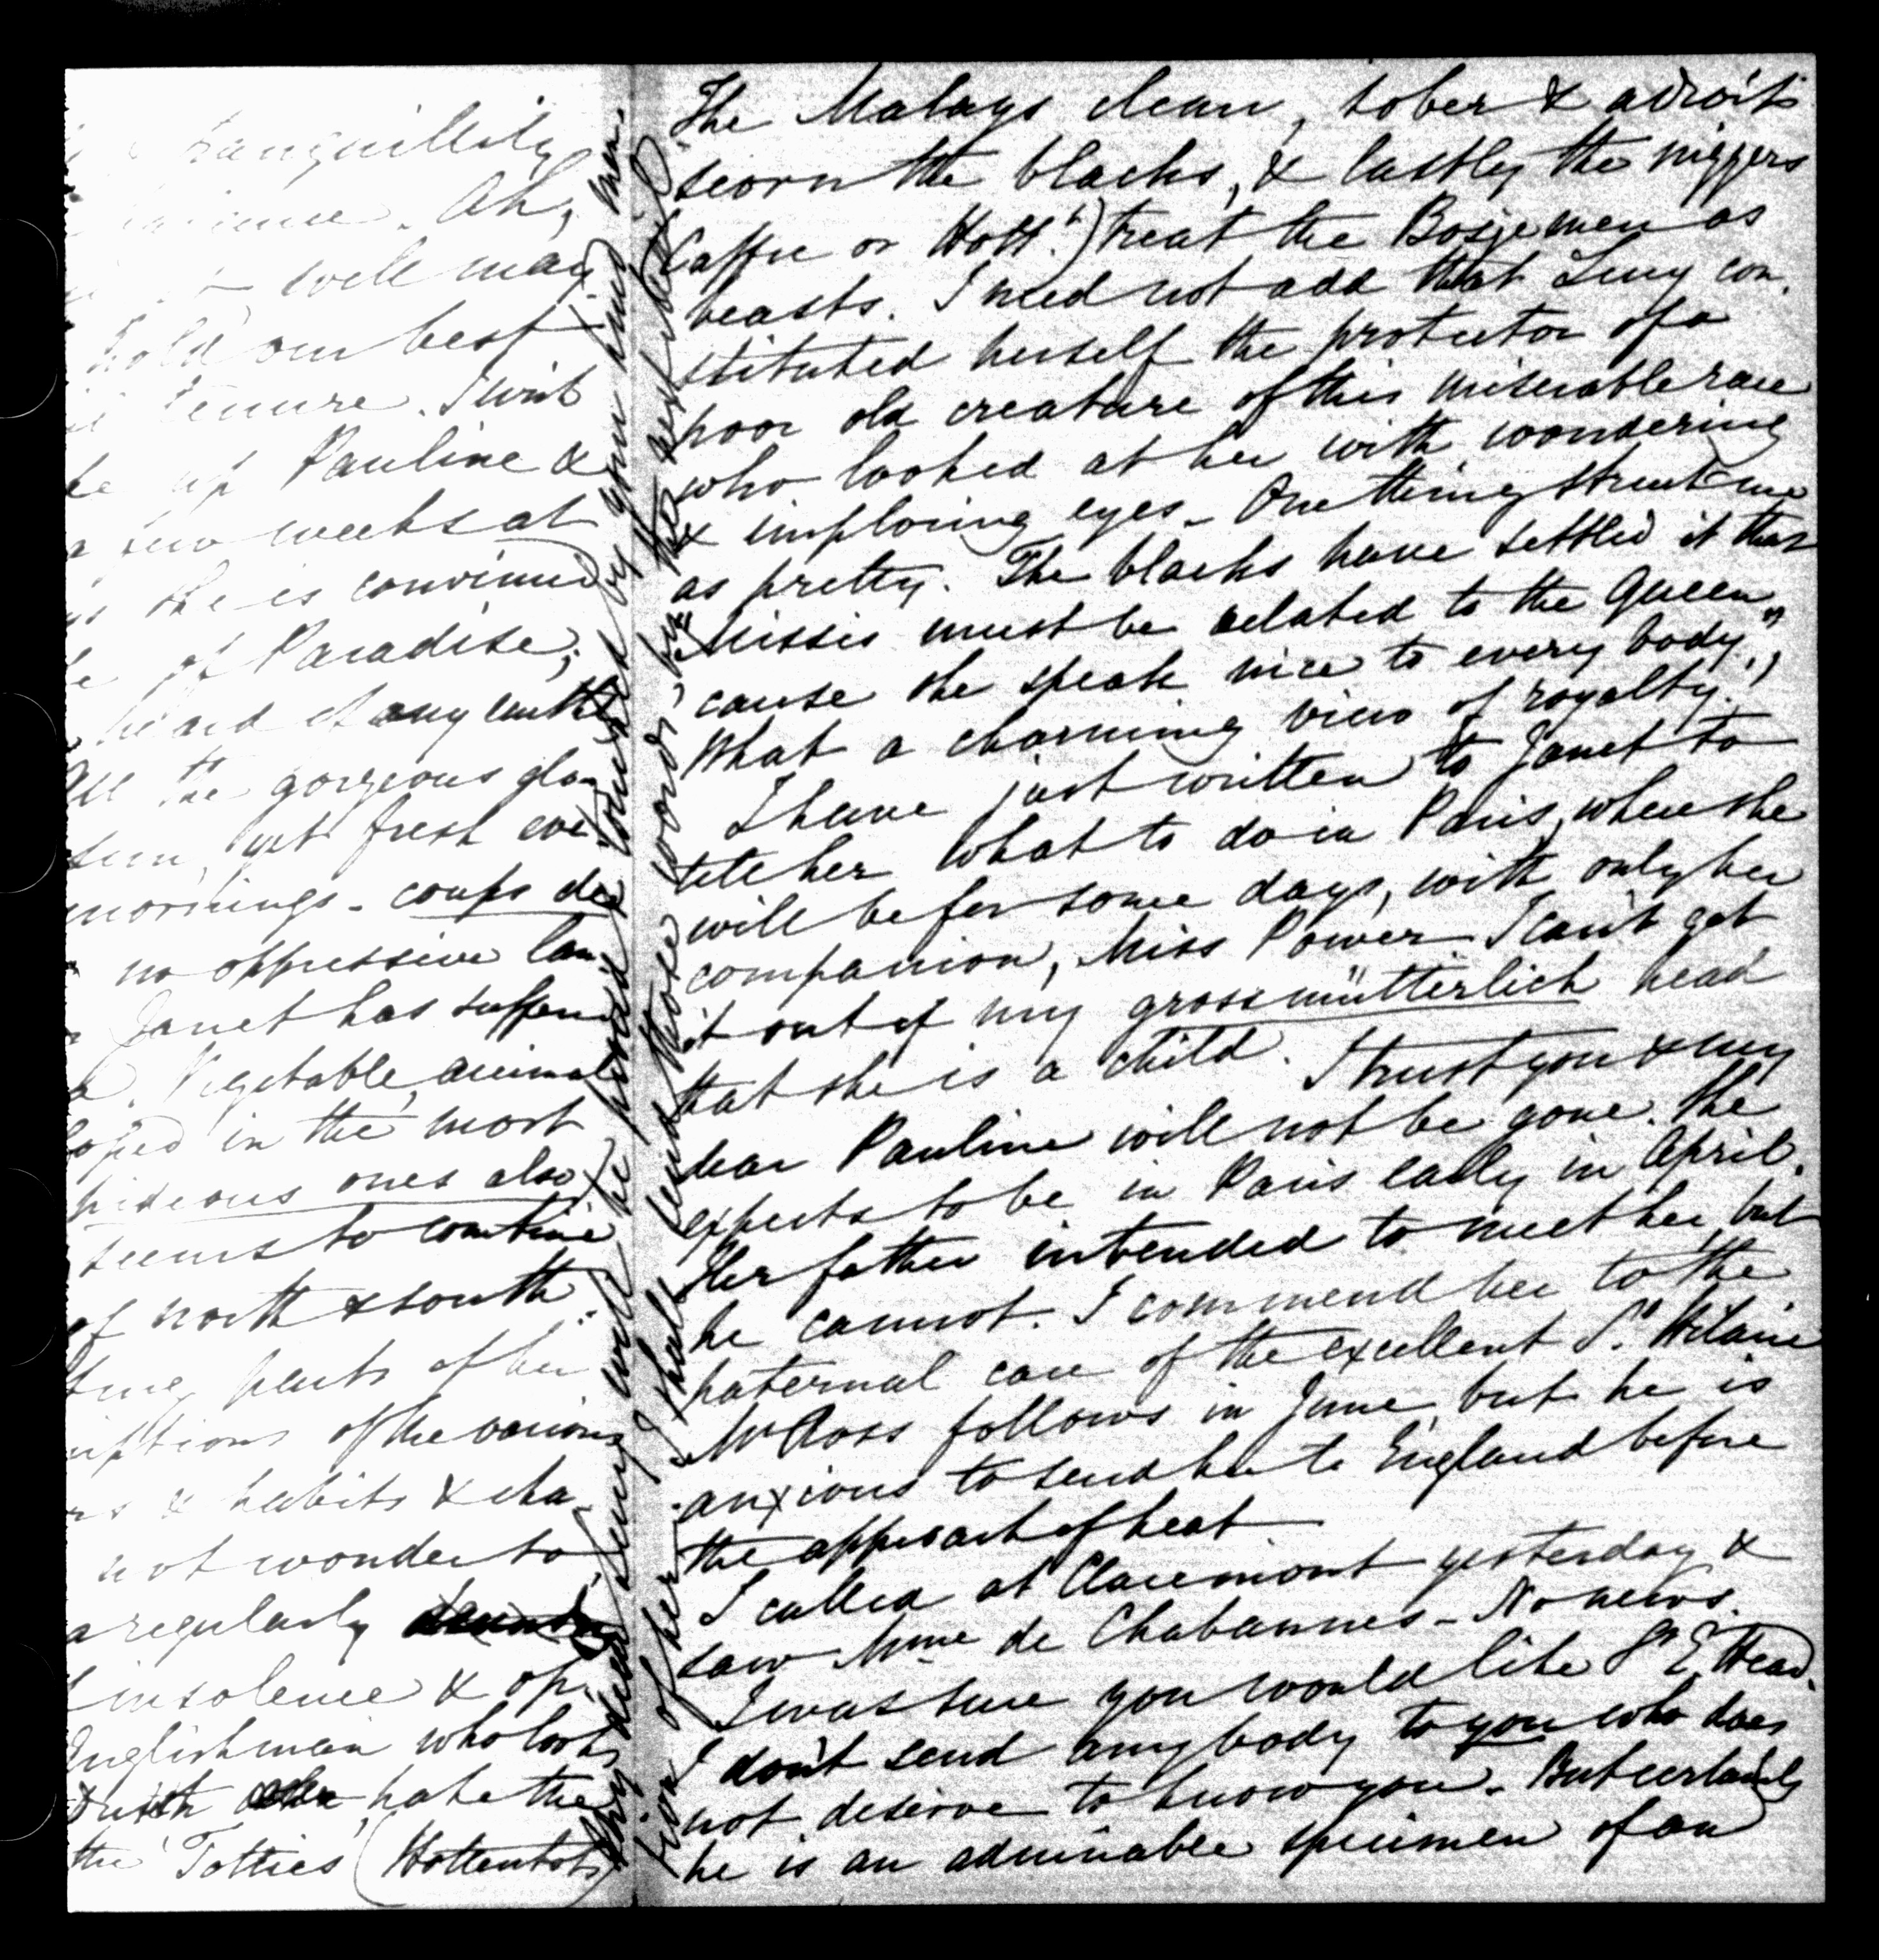 tranquillity
Ah,
well may
hold our best
tenure. I wish
up Pauline &
few weeks at
she is convinced
of Paradise;
heard of any earthly
All the gorgeous glo-
sun, yet fresh eve
mornings - coups de
no oppressive lan-
Janet has suffered
Vegetable, animal
loped in the most
hideous ones also)
seems to combine
of north & south.
parts of her
iptions of the various
& habits & cha-
not wonder to
a regularly
insolence & op-
Englishman who looks
Dutch hate the
the 'Totties' (Hottentots)
The Malays clean, sober & adroit
scorn the blacks, & lastly the niggers
(Caffre or Hott.ᵗ) treat the Bosjemen as
beasts. I need not add that Lucy con-
stituted herself the protector of a
poor old creature of this miserable race
who looked at her with wondering
& imploring eyes - One thing struck me
as pretty. The blacks have settled it that
"Missis must be related to the Queen,
cause she speak nice to every body."
What a charming view of royalty!
I have just written to Janet to
tell her what to do in Paris, where she
will be for some days, with only her
companion, Miss Power. I can't get
it out of my grossmütterlich head
that she is a child. I trust you & my
dear Pauline will not be gone. She
expects to be in Paris early in April.
Her father intended to meet her, but
he cannot. I commend her to the
paternal care of the excellent Sᵗ. Hilaire
Mr Ross follows in June, but he is
anxious to send her to England before
the approach of heat
I called at Claremont yesterday &
saw Mme de Chabannes - No news.
I was sure you would like Sʳ E. Head.
I don't send anybody to you who does
not deserve to know you. But certainly
he is an admirable specimen of an
My dear Lucy will be proud & touched by your kind men-
tion of her. I shall send those words, by the next steamer